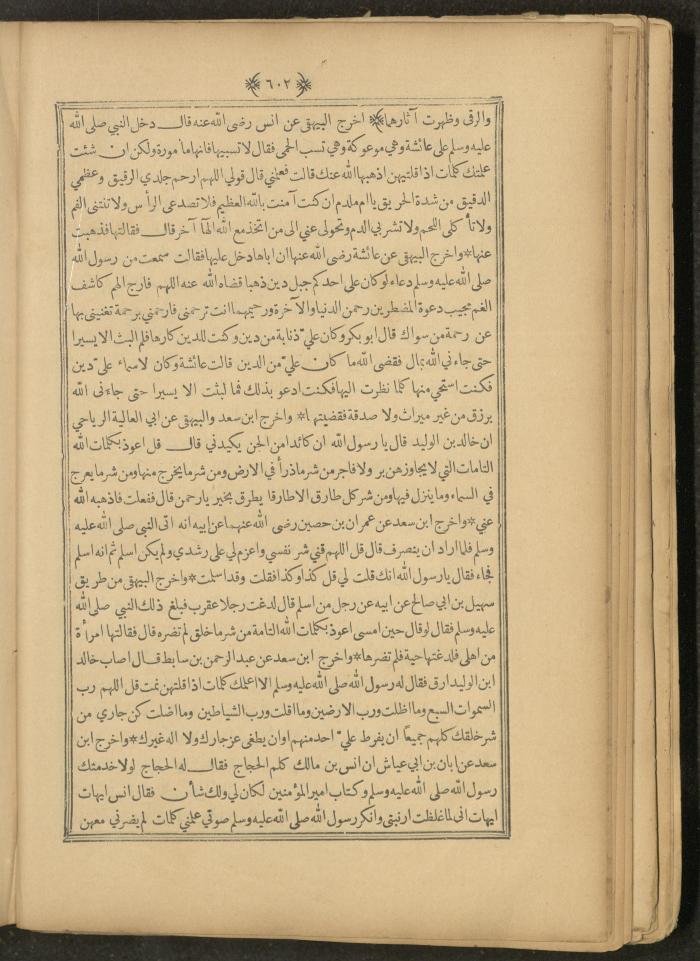 ٦٠٢
والرقى وظهرت آثارها* اخرج البيهقى عن انس رضى الله عنه قال دخل النبي صلى الله
عليه وسلم على عائشة وهي موعوكة وهي تسب الحمى فقال لا تسبيها فانها مأمورة ولكن ان شئت
علمتك كلمات اذا قلتيهن اذهبها الله عنك قالت فعلمني قال قولي اللهم ارحم جلدي الرقيق وعظمي
الدقيق من شدة الحريق يا ام ملدم ان كنت آمنت بالله العظيم فلا تصدعى الرأس ولا تنتنى الفم
ولا تأكلى اللحم ولا تشربي الدم وتحولى عني الى من اتخذ مع الله الهًا آخر قال فقالتها فذهبت
عنها* واخرج البيهقى عن عائشة رضى الله عنها ان اباها دخل عليها فقالت سمعت من رسول الله
صلى الله عليه وسلم دعاء لو كان على احدكم جبل دين ذهبا قضاه الله عنه اللهم فارج الهم كاشف
الغم مجيب دعوة المضطرين رحمن الدنيا والآخرة ورحيمهما انت ترحمنى فارحمني برحمة تغنينى بها
عن رحمة من سواك قال ابو بكر وكان عليّ ذنابة من دين وكنت للدين كارها فلم البث الا يسيرا
حتى جاءني الله بمال فقضى الله ما كان عليّ من الدين قالت عائشة وكان لاسماء عليّ دين
فكنت استحي منها كلما نظرت اليها فكنت ادعو بذلك فما لبثت الا يسيرا حتى جاءنى الله
برزق من غير ميراث ولا صدقة فقضيتها* واخرج ابن سعد والبيهقى عن ابي العالية الرياحي
ان خالد بن الوليد قال يا رسول الله ان كائدا من الجن يكيدني قال قل اعوذ بكلمات الله
التامات التي لا يجاوزهن بر ولا فاجر من شر ما ذرأ في الارض ومن شر ما يخرج منها ومن شر ما يعرج
في السماء وما ينزل فيها ومن شر كل طارق الا طارقا يطرق بخير يا رحمن قال ففعلت فاذهبه الله
عني* واخرج ابن سعد عن عمران بن حصين رضى الله عنهما عن ابيه انه اتى النبى صلى الله عليه
وسلم فلما اراد ان ينصرف قال قل اللهم قني شر نفسي واعزم لي على رشدي ولم يكن اسلم ثم انه اسلم
فجاء فقال يا رسول الله انك قلت لي قل كذا وكذا فقلت وقد اسلمت* واخرج البيهقى من طريق
سهيل بن ابي صالح عن ابيه عن رجل من اسلم قال لدغت رجلا عقرب فبلغ ذلك النبي صلى الله
عليه وسلم فقال لو قال حين امسى اعوذ بكلمات الله التامة من شر ما خلق لم تضره قال فقالتها امرأة
من اهلى فلدغتها حية فلم تضرها* واخرج ابن سعد عن عبد الرحمن بن سابط قال اصاب خالد
ابن الوليد ارق فقال له رسول الله صلى الله عليه وسلم الا اعلمك كلمات اذا قلتهن نمت قل اللهم رب
السموات السبع وما اظلت ورب الارضين وما اقلت ورب الشياطين وما اضلت كن جاري من
شر خلقك كلهم جميعًا ان يفرط عليّ احد منهم او ان يطغى عز جارك ولا اله غيرك* واخرج ابن
سعد عن ابان بن ابي عياش ان انس بن مالك كلم الحجاج فقال له الحجاج لولا خدمتك
رسول الله صلى الله عليه وسلم وكتاب امير المؤمنين لكان لي ولك شأن فقال انس ايهات
ايهات انى لما غلظت ارنبتى وانكر رسول الله صلى الله عليه وسلم صوتي علمني كلمات لم يضرني معهن